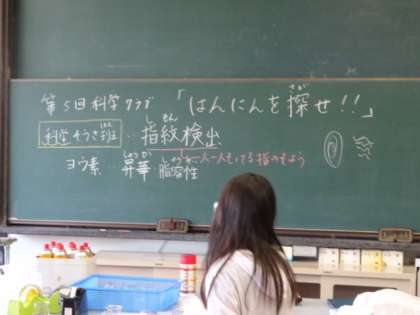 第5回科学クラブ 「はんにんを探せ!!」
さが
科学そうさ班 … 指紋検出
はん
しもん
一人一人もってる指のもよう
ヨウ素 … 昇華 脂溶性
しょうか